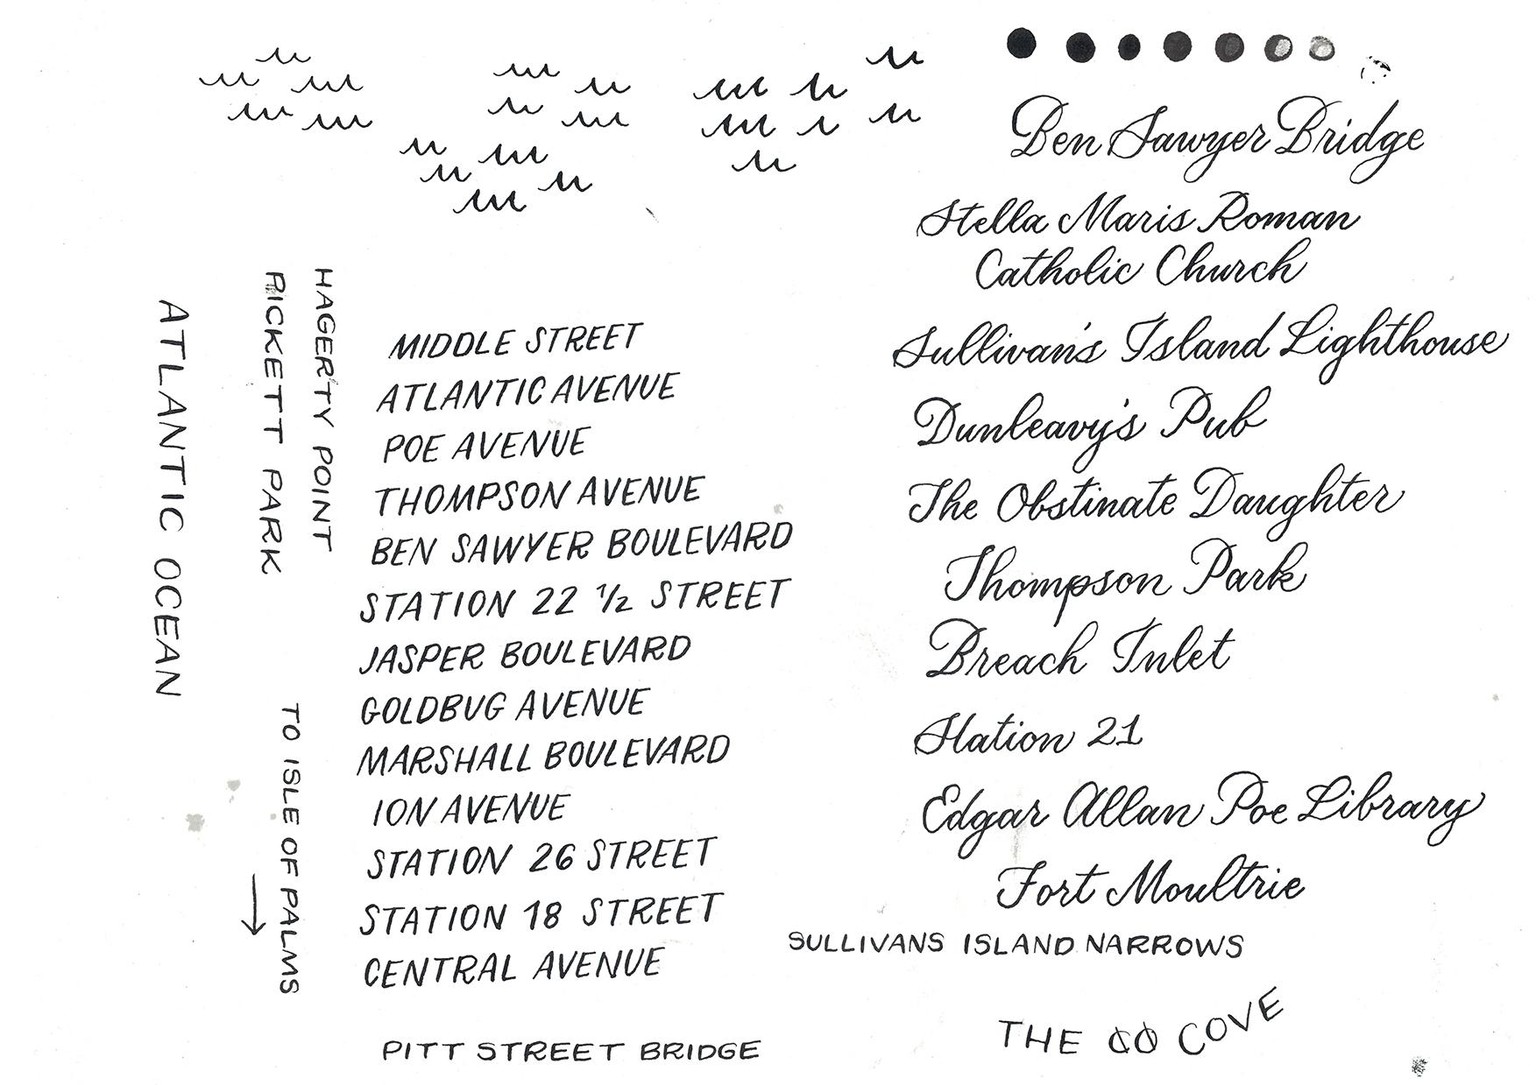 ATLANTIC OCEAN
RICKETT PARK
HAGERTY POINT
TO ISLE OF PALMS
MIDDLE STREET
ATLANTIC AVENUE
POE AVENUE
THOMPSON AVENUE
BEN SAWYER BOULEVARD
STATION 22 1/2 STREET
JASPER BOULEVARD
GOLDBUG AVENUE
MARSHALL BOULEVARD
ION AVENUE
STATION 26 STREET
STATION 18 STREET
CENTRAL AVENUE
PITT STREET BRIDGE
Ben Sawyer Bridge
Stella Maris Roman
Catholic Church
Sullivan's Island Lighthouse
Dunleavy's Pub
The Obstinate Daughter
Thompson Park
Breach Inlet
Station 21
Edgar Allan Poe Library
Fort Moultrie
SULLIVANS ISLAND NARROWS
THE COVE